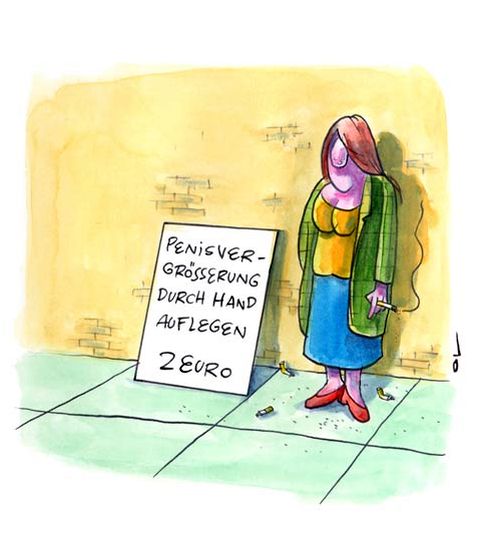 PENISVER-
GRÖSSERUNG
DURCH HAND
AUFLEGEN
2 EURO
OL